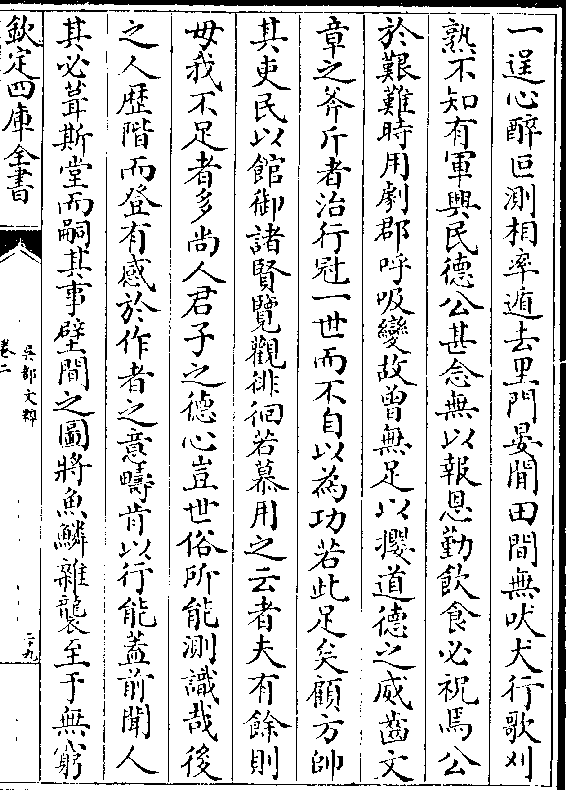 一逞心醉叵測相率遁去里門晏閒田間無吠犬行歌刈
熟不知有軍興民德公甚念無以報恩勤飲食必祝焉公
於艱難時用劇郡呼吸變故曾無足以攖道德之威齒文
章之斧斤者治行冠一世而不自以為功若此足矣顧方帥
其吏民以館御諸賢覽觀徘徊若慕用之云者夫有餘則
毋我不足者多尚人君子之德心豈世俗所能測識哉後
之人歴階而登有感於作者之意疇肯以行能蓋前聞人
其必葺斯堂而嗣其事壁間之圖將魚鱗雜襲至于無窮
欽定四庫全書
吳都文粹
卷二
二九